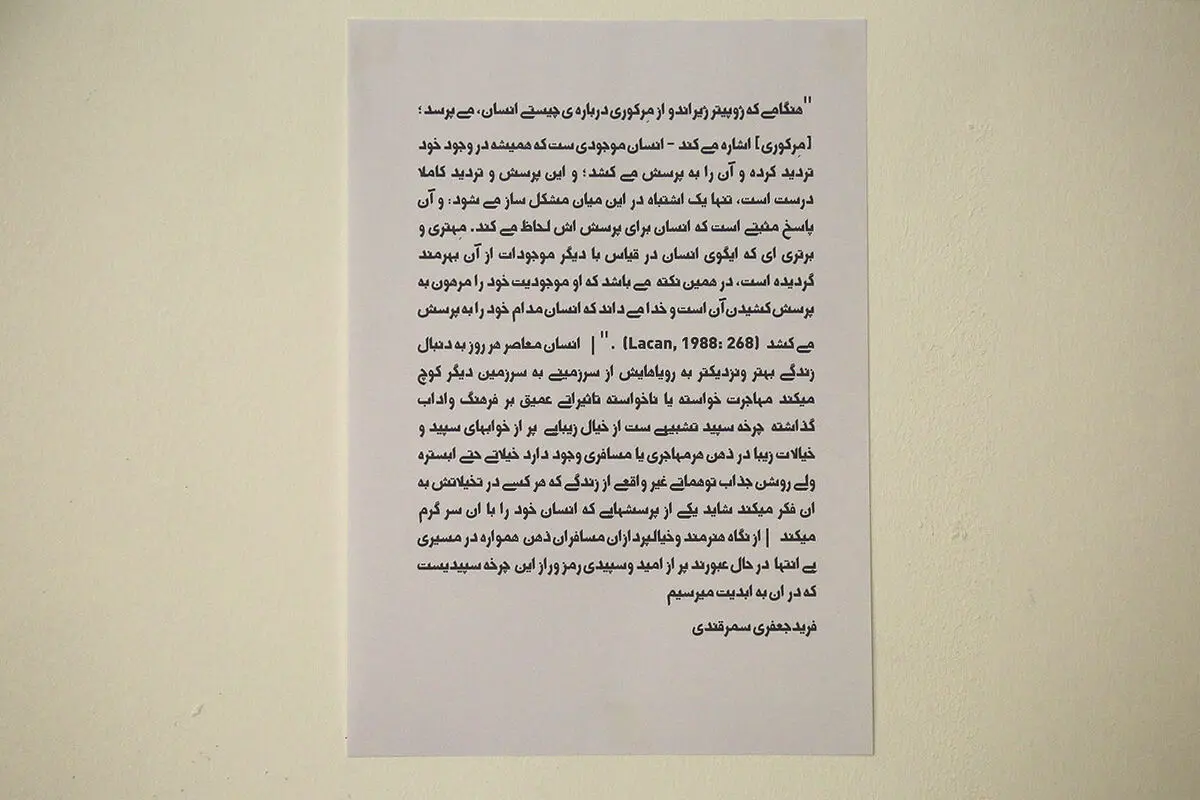 "هنگامی که ژوپیتر ژیراندو از مِرکوری درباره ی چیستی انسان، می پرسد ؛
[مِرکوری] اشاره می کند - انسان موجودی ست که همیشه در وجود خود
تردید کرده و آن را به پرسش می کشد؛ و این پرسش و تردید کاملا
درست است، تنها یک اشتباه در این میان مشکل ساز می شود: و آن
پاسخ مثبتی است که انسان برای پرسش اش لحاظ می کند. مِهتری و
برتری ای که ایگوی انسان در قیاس با دیگر موجودات از آن بهرمند
گردیده است، در همین نکته می باشد که او موجودیت خود را مرهون به
پرسش کشیدن آن است و خدا می داند که انسان مدام خود را به پرسش
می کشد (Lacan, 1988: 268) ." | انسان معاصر هر روز به دنبال
زندگی بهتر ونزدیکتر به رویاهایش از سرزمینی به سرزمین دیگر کوچ
میکند مهاجرت خواسته یا ناخواسته تاثیراتی عمیق بر فرهنگ واداب
گذاشته چرخه سپید تشبیهی ست از خیال زیبایی پر از خوابهای سپید و
خیالات زیبا در ذهن هرمهاجری یا مسافری وجود دارد خیلاتی حتی ابستره
ولی روشن جذاب توهماتی غیر واقعی از زندگی که هر کسی در تخیلاتش به
ان فکر میکند شاید یکی از پرسشهایی که انسان خود را با ان سر گرم
میکند | از نگاه هنرمند وخیالپردازان مسافران ذهن همواره در مسیری
بی انتها در حال عبورند پر از امید وسپیدی رمز وراز این چرخه سپیدیست
که در ان به ابدیت میرسیم
فریدجعفری سمرقندی